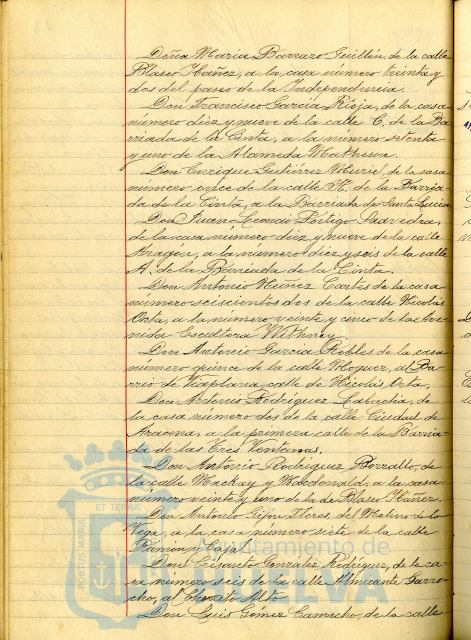 Doña María Barrazo Guillén, de la calle
Blasco Ibáñez, a la casa número treinta y
dos del paseo de la Independencia.
Don Francisco García Rioja, de la casa
número diez y nueve de la calle C, de la Ba
rriada de la Cinta, a la número setenta
y uno de la Alameda Mathesen.
Don Enrique Gutiérrez, de la casa
número once de la calle H. de la Barria-
da de la Cinta, a la Barriada de Santa Lucía
Don Juan Leoncio Póstigo Saavedra,
de la casa número diez y nueve de la calle
Aragon, a la número diez y seis de la calle
A, de la Barriada de la Cinta.
Don Antonio Núñez Cortés de la casa
número seiscientos dos de la calle Nicolás
Orta, a la número veinte y cinco de la Ave-
nida Escultora Withney
Don Antonio García Robles de la casa
número quince de la calle Moguer, al Ba
rrio de Viaplana, calle de Nicolás Orta,
Don Antonio Rodríguez, de
la casa número dos de la calle Ciudad de
Aracena, a la primera calle de la Barria-
da de las Tres Ventanas.
Don Antonio Rodríguez Borrallo, de
la calle Mackay y Macdonald, a la casa
número veinte y uno de la de Blasco Ibáñez.
Don Antonio Gijón Flores, del Molino de la
Vega, a la casa número siete de la calle
Ramon y Cajal.
Don Crisanto González Rodríguez, de la ca
sa número seis de la calle Almirante Garro-
cho, al Chorrito Alto
Don Luis Gómez Camacho, de la calle
PORTUS MARIS
ET TERRÆ
Ayuntamiento de
HUELVA